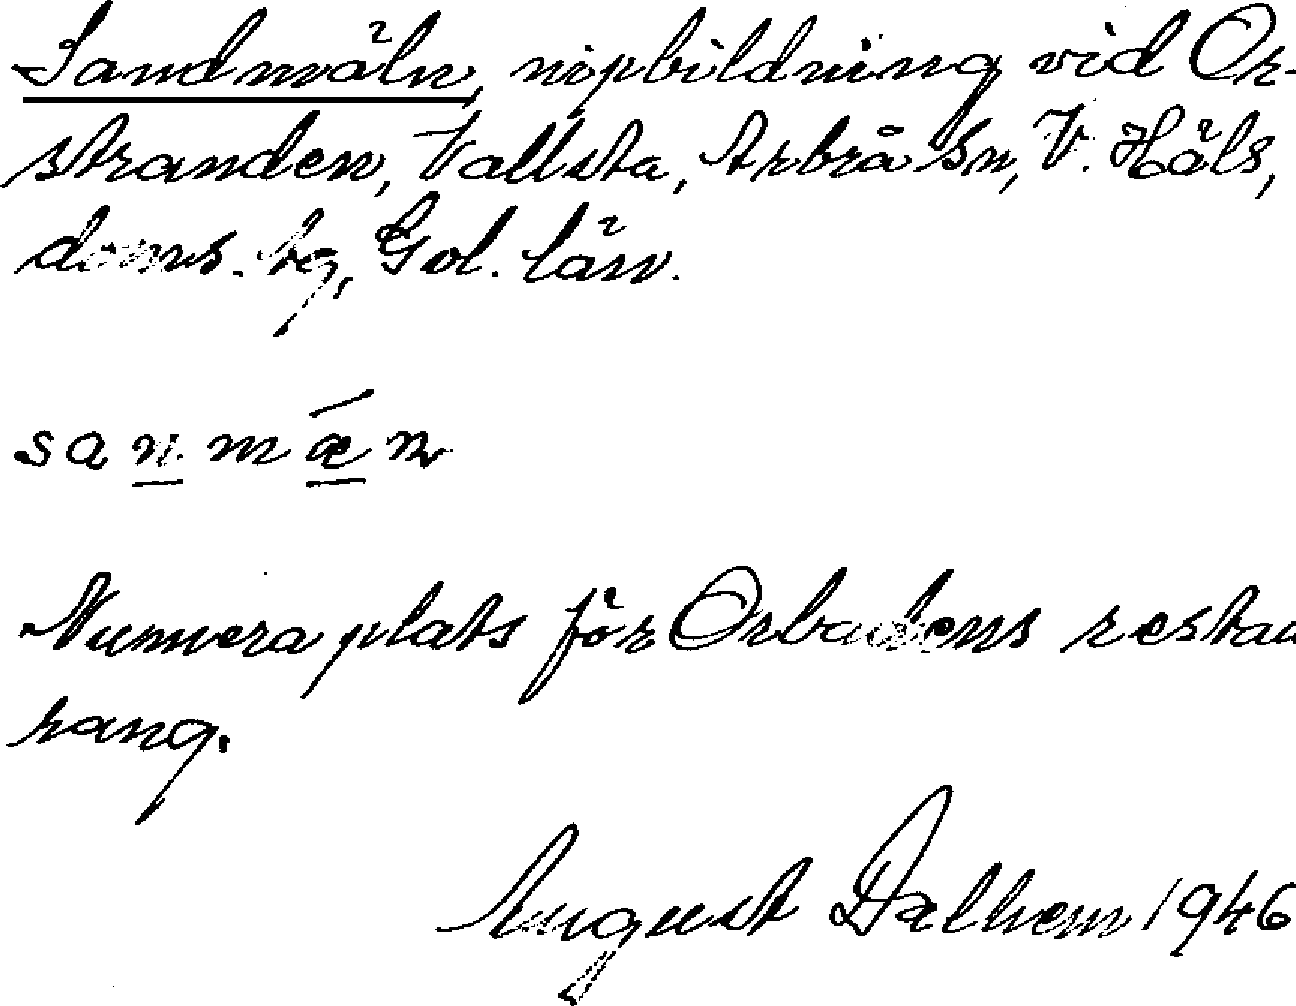 Sandmäln, nipbildning vid Or-
stranden, Vallsta, Arbrå Sn, V. Häls,
doms. tg, Gvl. län.
sanmǽn
Numera plats för Orbadens restau
rang.
August Dalhem 1946